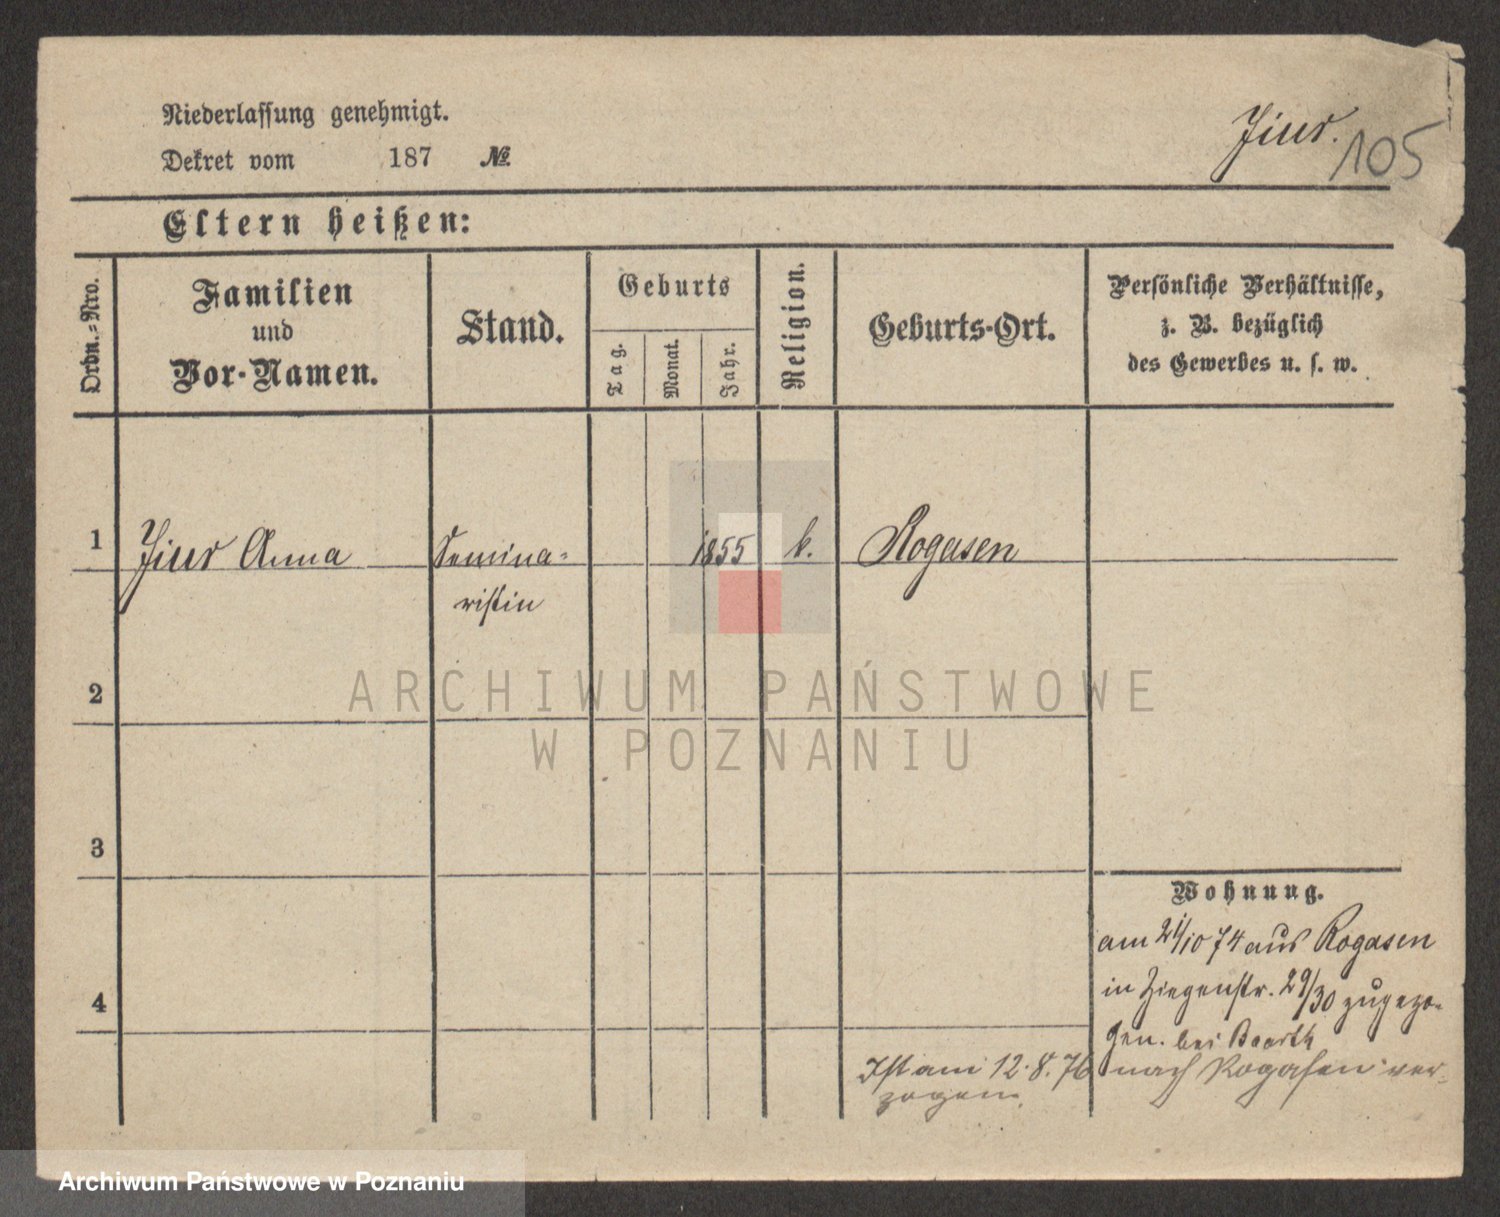 Niederlassung genehmigt.
Dekret vom 187 №
105
Eltern heißen:
Ordn.-Nro.
Familien
und
Vor-Namen.
Stand.
Geburts
Tag.
Monat.
Jahr.
Religion.
Geburts-Ort.
Persönliche Verhältnisse,
z. B. bezüglich
des Gewerbes u. s. w.
1 Anna Semina= 1855 k. Rogasen
ristin
2
3
4
Wohnung.
am 21/10 74 aus Rogasen
in Ziegenstr. 29/30 zugezo-
gen. bei
Ist am 12.8.76 nach Rogasen ver-
zogen.
ARCHIWUM PAŃSTWOWE
W POZNANIU
Archiwum Państwowe w Poznaniu